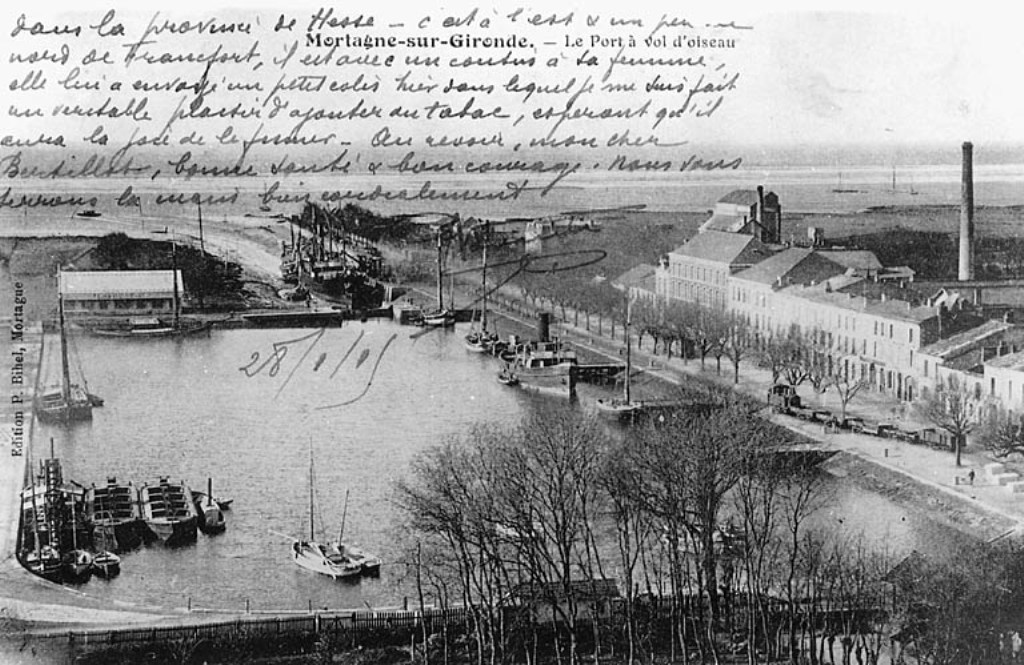 dans la province de Hesse - c'est à l'est & un peu au
Mortagne-sur-Gironde. - Le Port à vol d'oiseau
nord de Francfort, il est avec un cousin à sa femme,
elle lui a envoyé un petit colis hier dans lequel je me suis fait
un veritable plaisir d'ajouter du tabac, esperant qu'il
aura la joie de le fumer - Au revoir, mon cher
Bertillot, bonne santé & bon courage. Nous vous
serrons la main bien cordialement
28/1/15
Edition P. Bihel, Mortagne